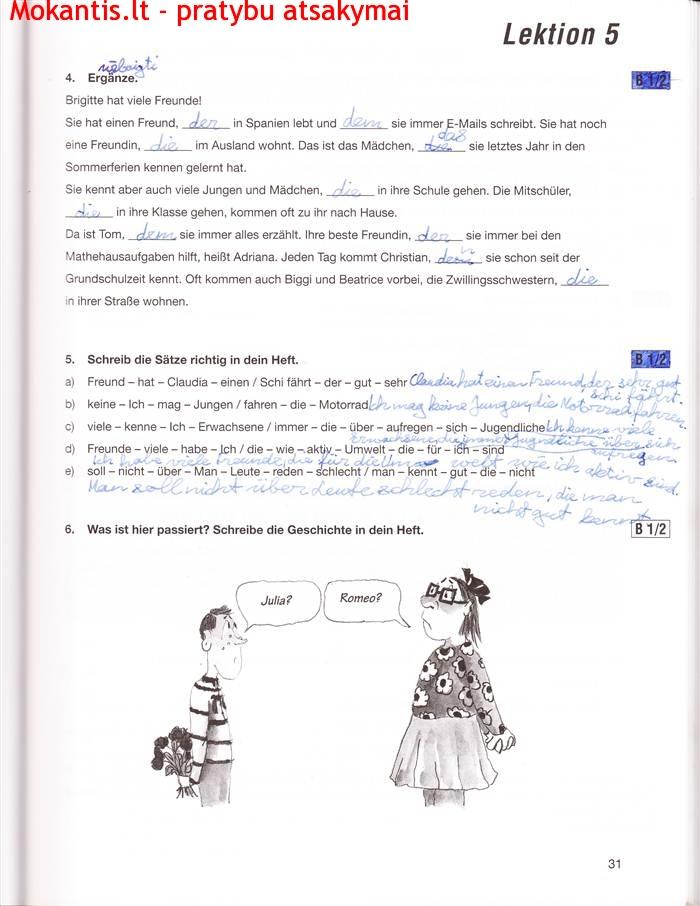 Mokantis.lt - pratybu atsakymai
Lektion 5
4. Ergänze. B 1/2
Brigitte hat viele Freunde!
Sie hat einen Freund, der in Spanien lebt und dem sie immer E-Mails schreibt. Sie hat noch
eine Freundin, die im Ausland wohnt. Das ist das Mädchen, das sie letztes Jahr in den
Sommerferien kennen gelernt hat.
Sie kennt aber auch viele Jungen und Mädchen, die in ihre Schule gehen. Die Mitschüler,
die in ihre Klasse gehen, kommen oft zu ihr nach Hause.
Da ist Tom, dem sie immer alles erzählt. Ihre beste Freundin, der sie immer bei den
Mathehausaufgaben hilft, heißt Adriana. Jeden Tag kommt Christian, den sie schon seit der
Grundschulzeit kennt. Oft kommen auch Biggi und Beatrice vorbei, die Zwillingsschwestern, die
in ihrer Straße wohnen.
5. Schreib die Sätze richtig in dein Heft. B 1/2
a) Freund – hat – Claudia – einen / Schi fährt – der – gut – sehr Claudia hat einen Freund, der sehr gut
Schi fährt.
b) keine – Ich – mag – Jungen / fahren – die – Motorrad Ich mag keine Jungen, die Motorrad fahren.
c) viele – kenne – Ich – Erwachsene / immer – die – über – aufregen – sich – Jugendliche Ich kenne viele
Erwachsene, die immer Jugendliche über sich
aufregen
d) Freunde – viele – habe – Ich / die – wie – aktiv – Umwelt – die – für – ich – sind
ich habe viele Freunde, die für die Umwelt wie ich aktiv sind.
e) soll – nicht – über – Man – Leute – reden – schlecht / man – kennt – gut – die – nicht
Man soll nicht über Leute schlecht reden, die man
nicht gut kennt
6. Was ist hier passiert? Schreibe die Geschichte in dein Heft. B 1/2
Julia?
Romeo?
31